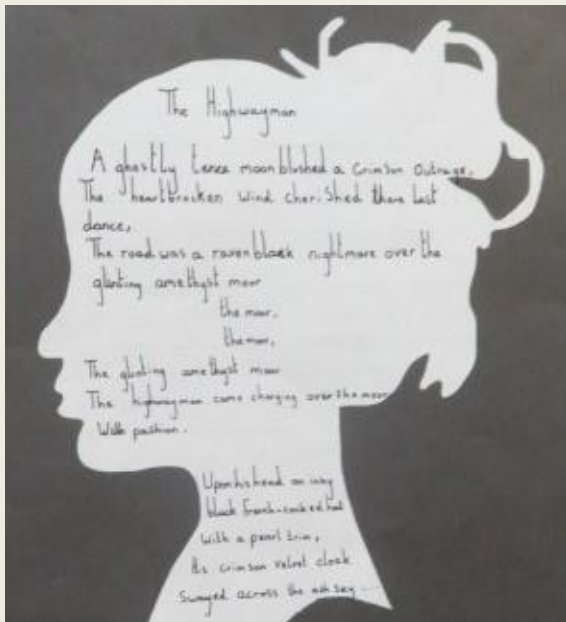 The Highwayman
A ghostly tence moon blushed a crimson outrage,
The heartbrocken wind cherished there last
dance,
The road was a raven black nightmare over the
glinting amethyst moor
the moor,
the moor,
The glinting amethyst moor
The highwayman came charging over the moor
With pashion.
Upon his head an inky
black french-cocked hat
with a pearl trim,
His crimson velvet cloak
Swayed across the ash sky